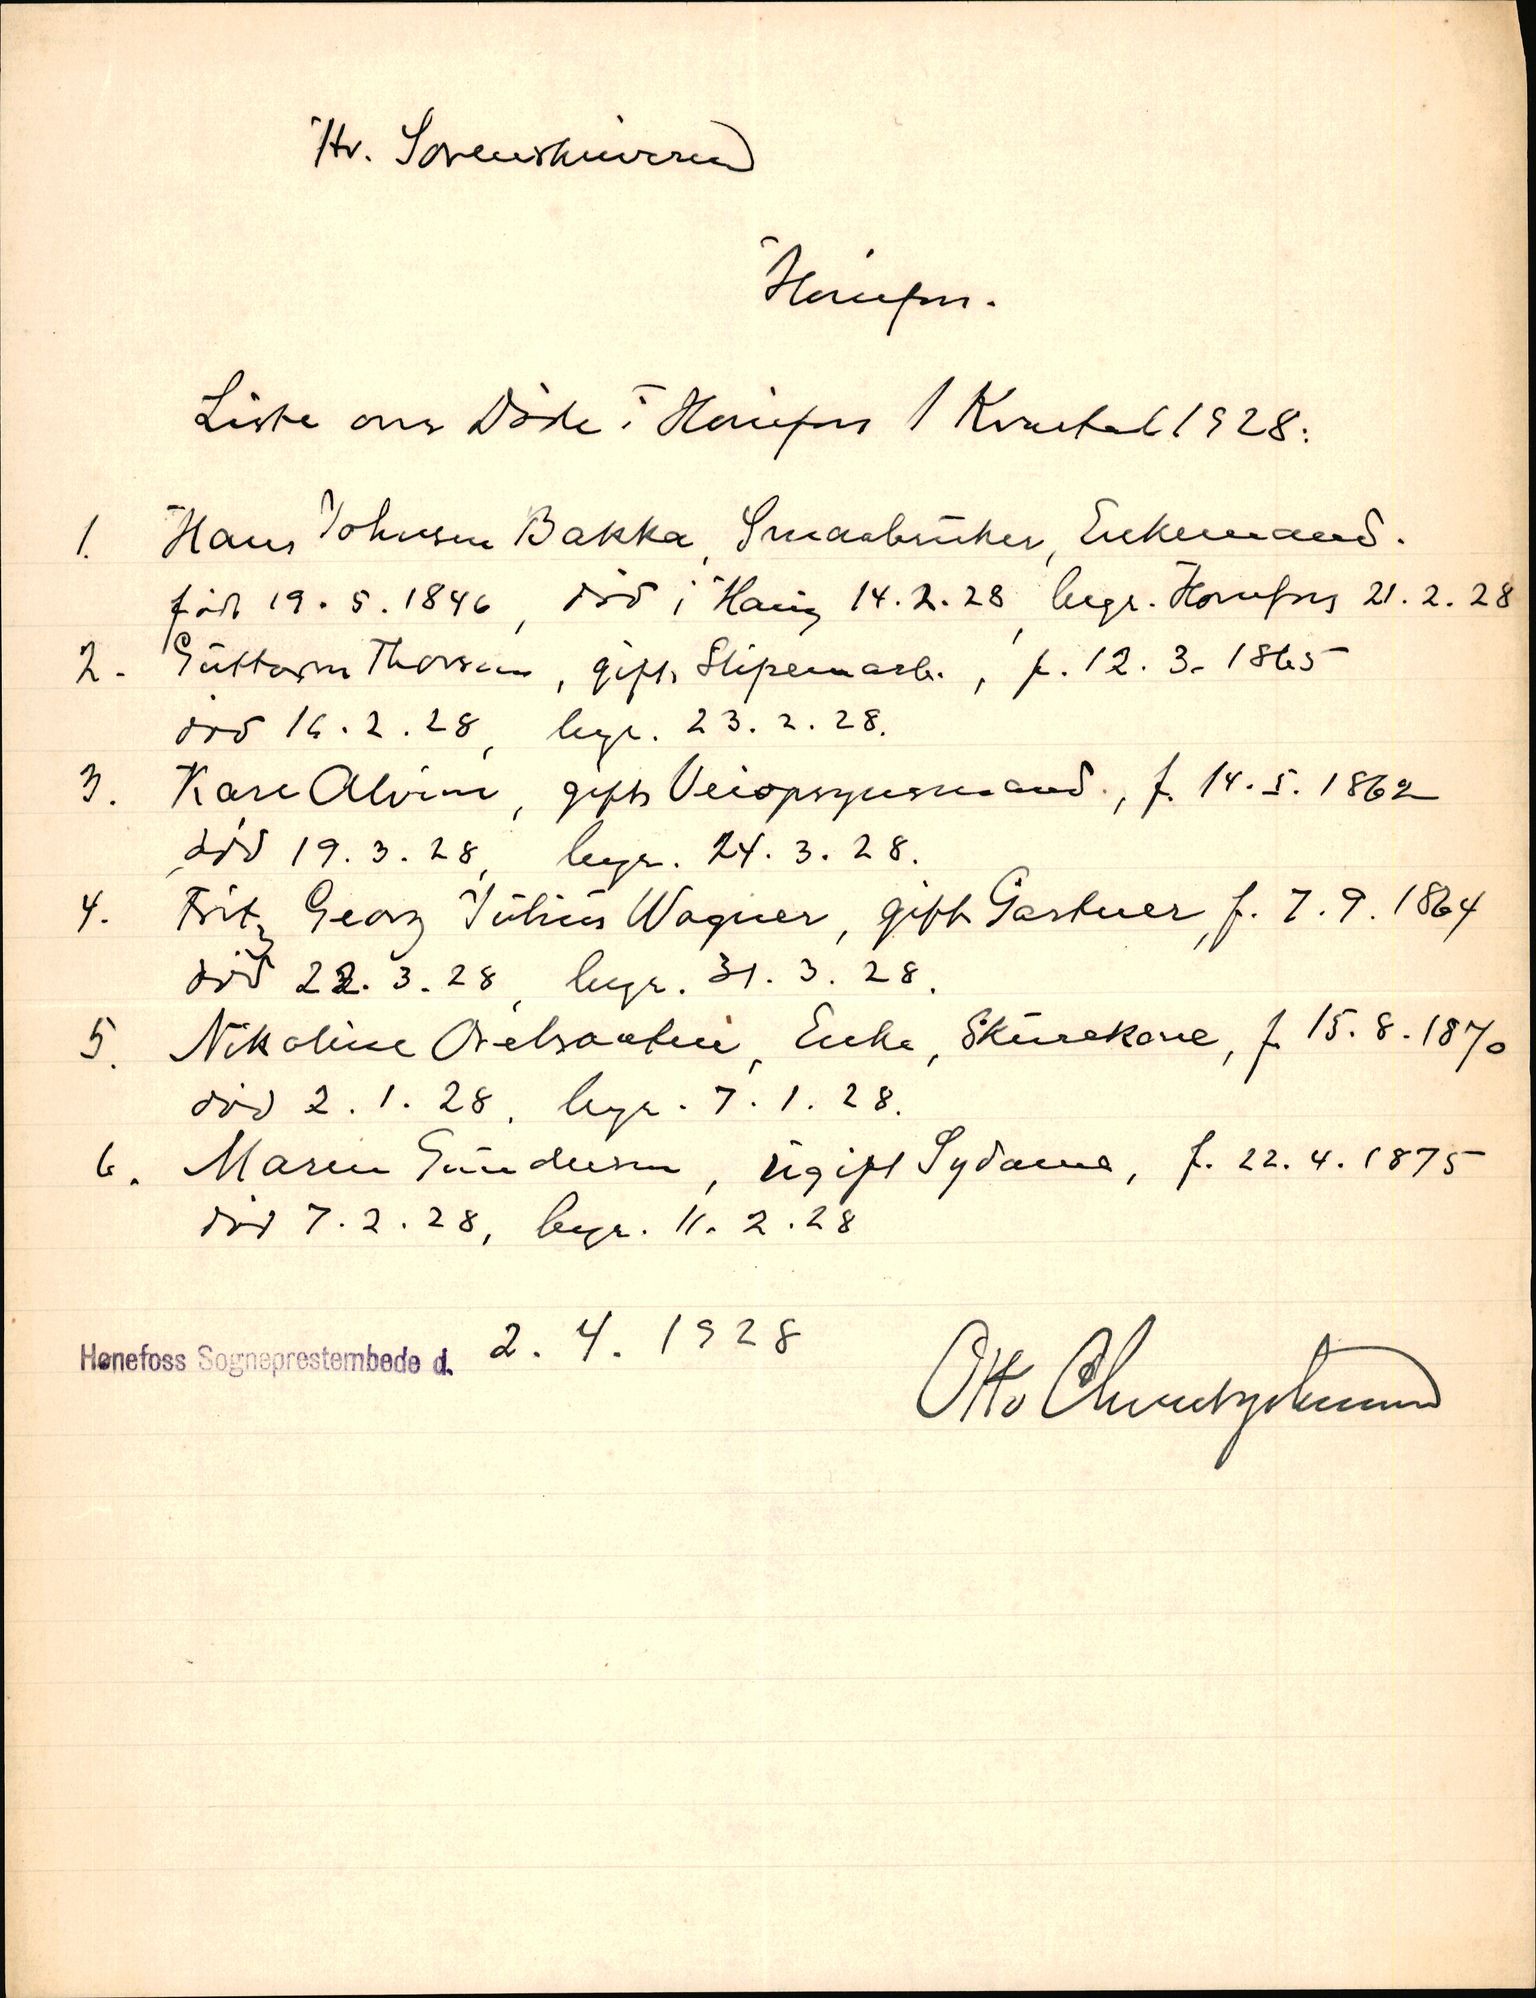 Hr. Sorenskriveren
Hønefoss.
Liste over Døde i Hønefoss 1 Kvartal 1928:
1. Hans Johnsen Bakka, Smaabruker, Enkemand.
født 19.5.1846, død i Haug 14.2.28, begr. Hønefoss 21.2.28
2. Guttorm Thorsen, gift Sliperiarb., f. 12.3.1865
død 16.2.28, begr. 23.2.28.
3. Kare Alvim, gift Veiopsynsmand, f. 14.5.1862
død 19.3.28, begr. 24.3.28.
4. Fritz Georg Julius Wagner, gift Gartner, f. 7.9.1864
død 22.3.28, begr. 31.3.28.
5. Nikoline, Enke, Skurekone, f. 15.8.1870
død 2.1.28, begr. 7.1.28.
6. Maren Gundersen, ugift Sydame, f. 22.4.1875
død 7.2.28, begr. 11.2.28
Hønefoss Sogneprestembede d. 2.4.1928
Otto